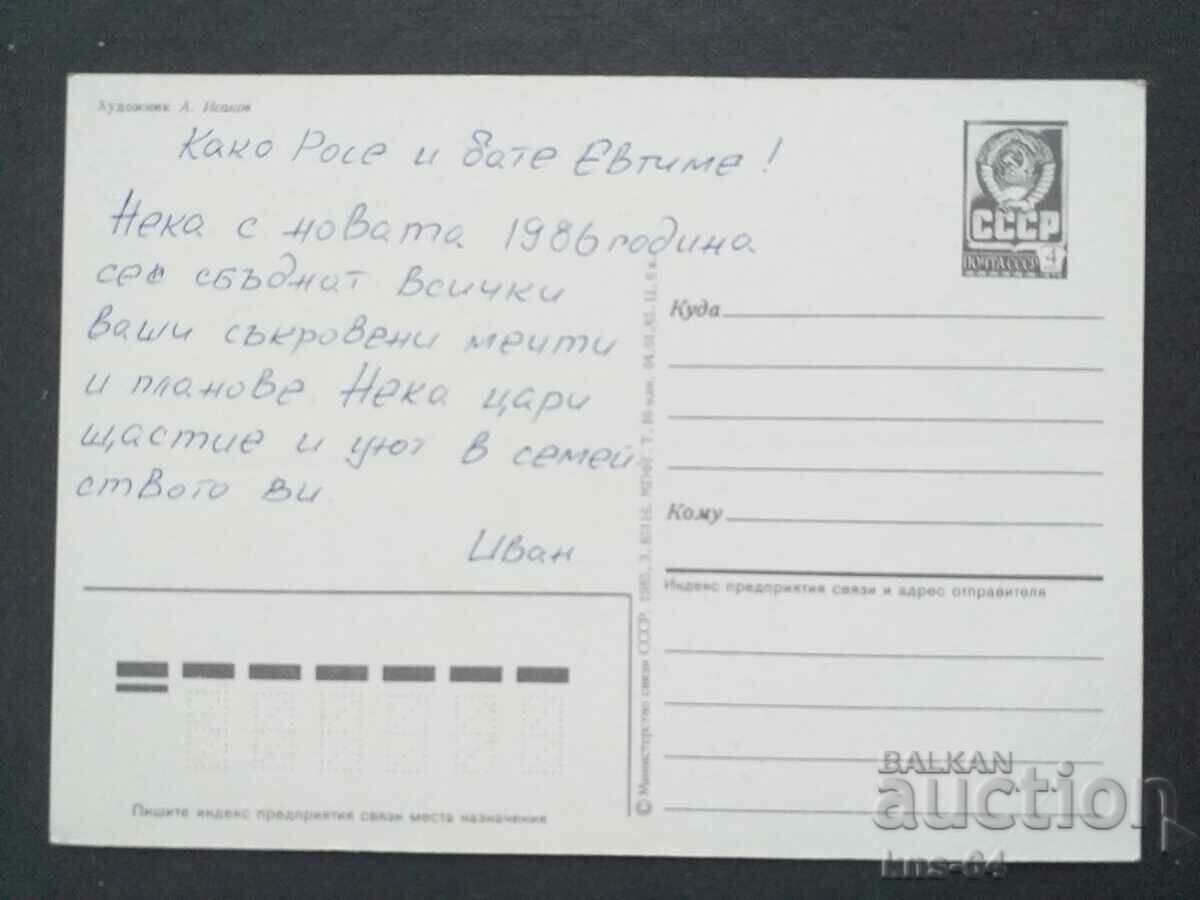 Художник А. Исаков
Како Росе и бате Евтиме!
Нека с новата 1986 година
се сбъднат всички
ваши съкровени мечти
и планове. Нека цари
щастие и уют в семей
ството ви.
Иван
СССР
ПОЧТА СССР 4
Куда
Кому
Индекс предприятия связи и адрес отправителя
© Министерство связи СССР, 1985, З. МПФГ. Т. 04.01.85. Ц. 6 к.
Пишите индекс предприятия связи места назначения
BALKAN
auction
kns-64